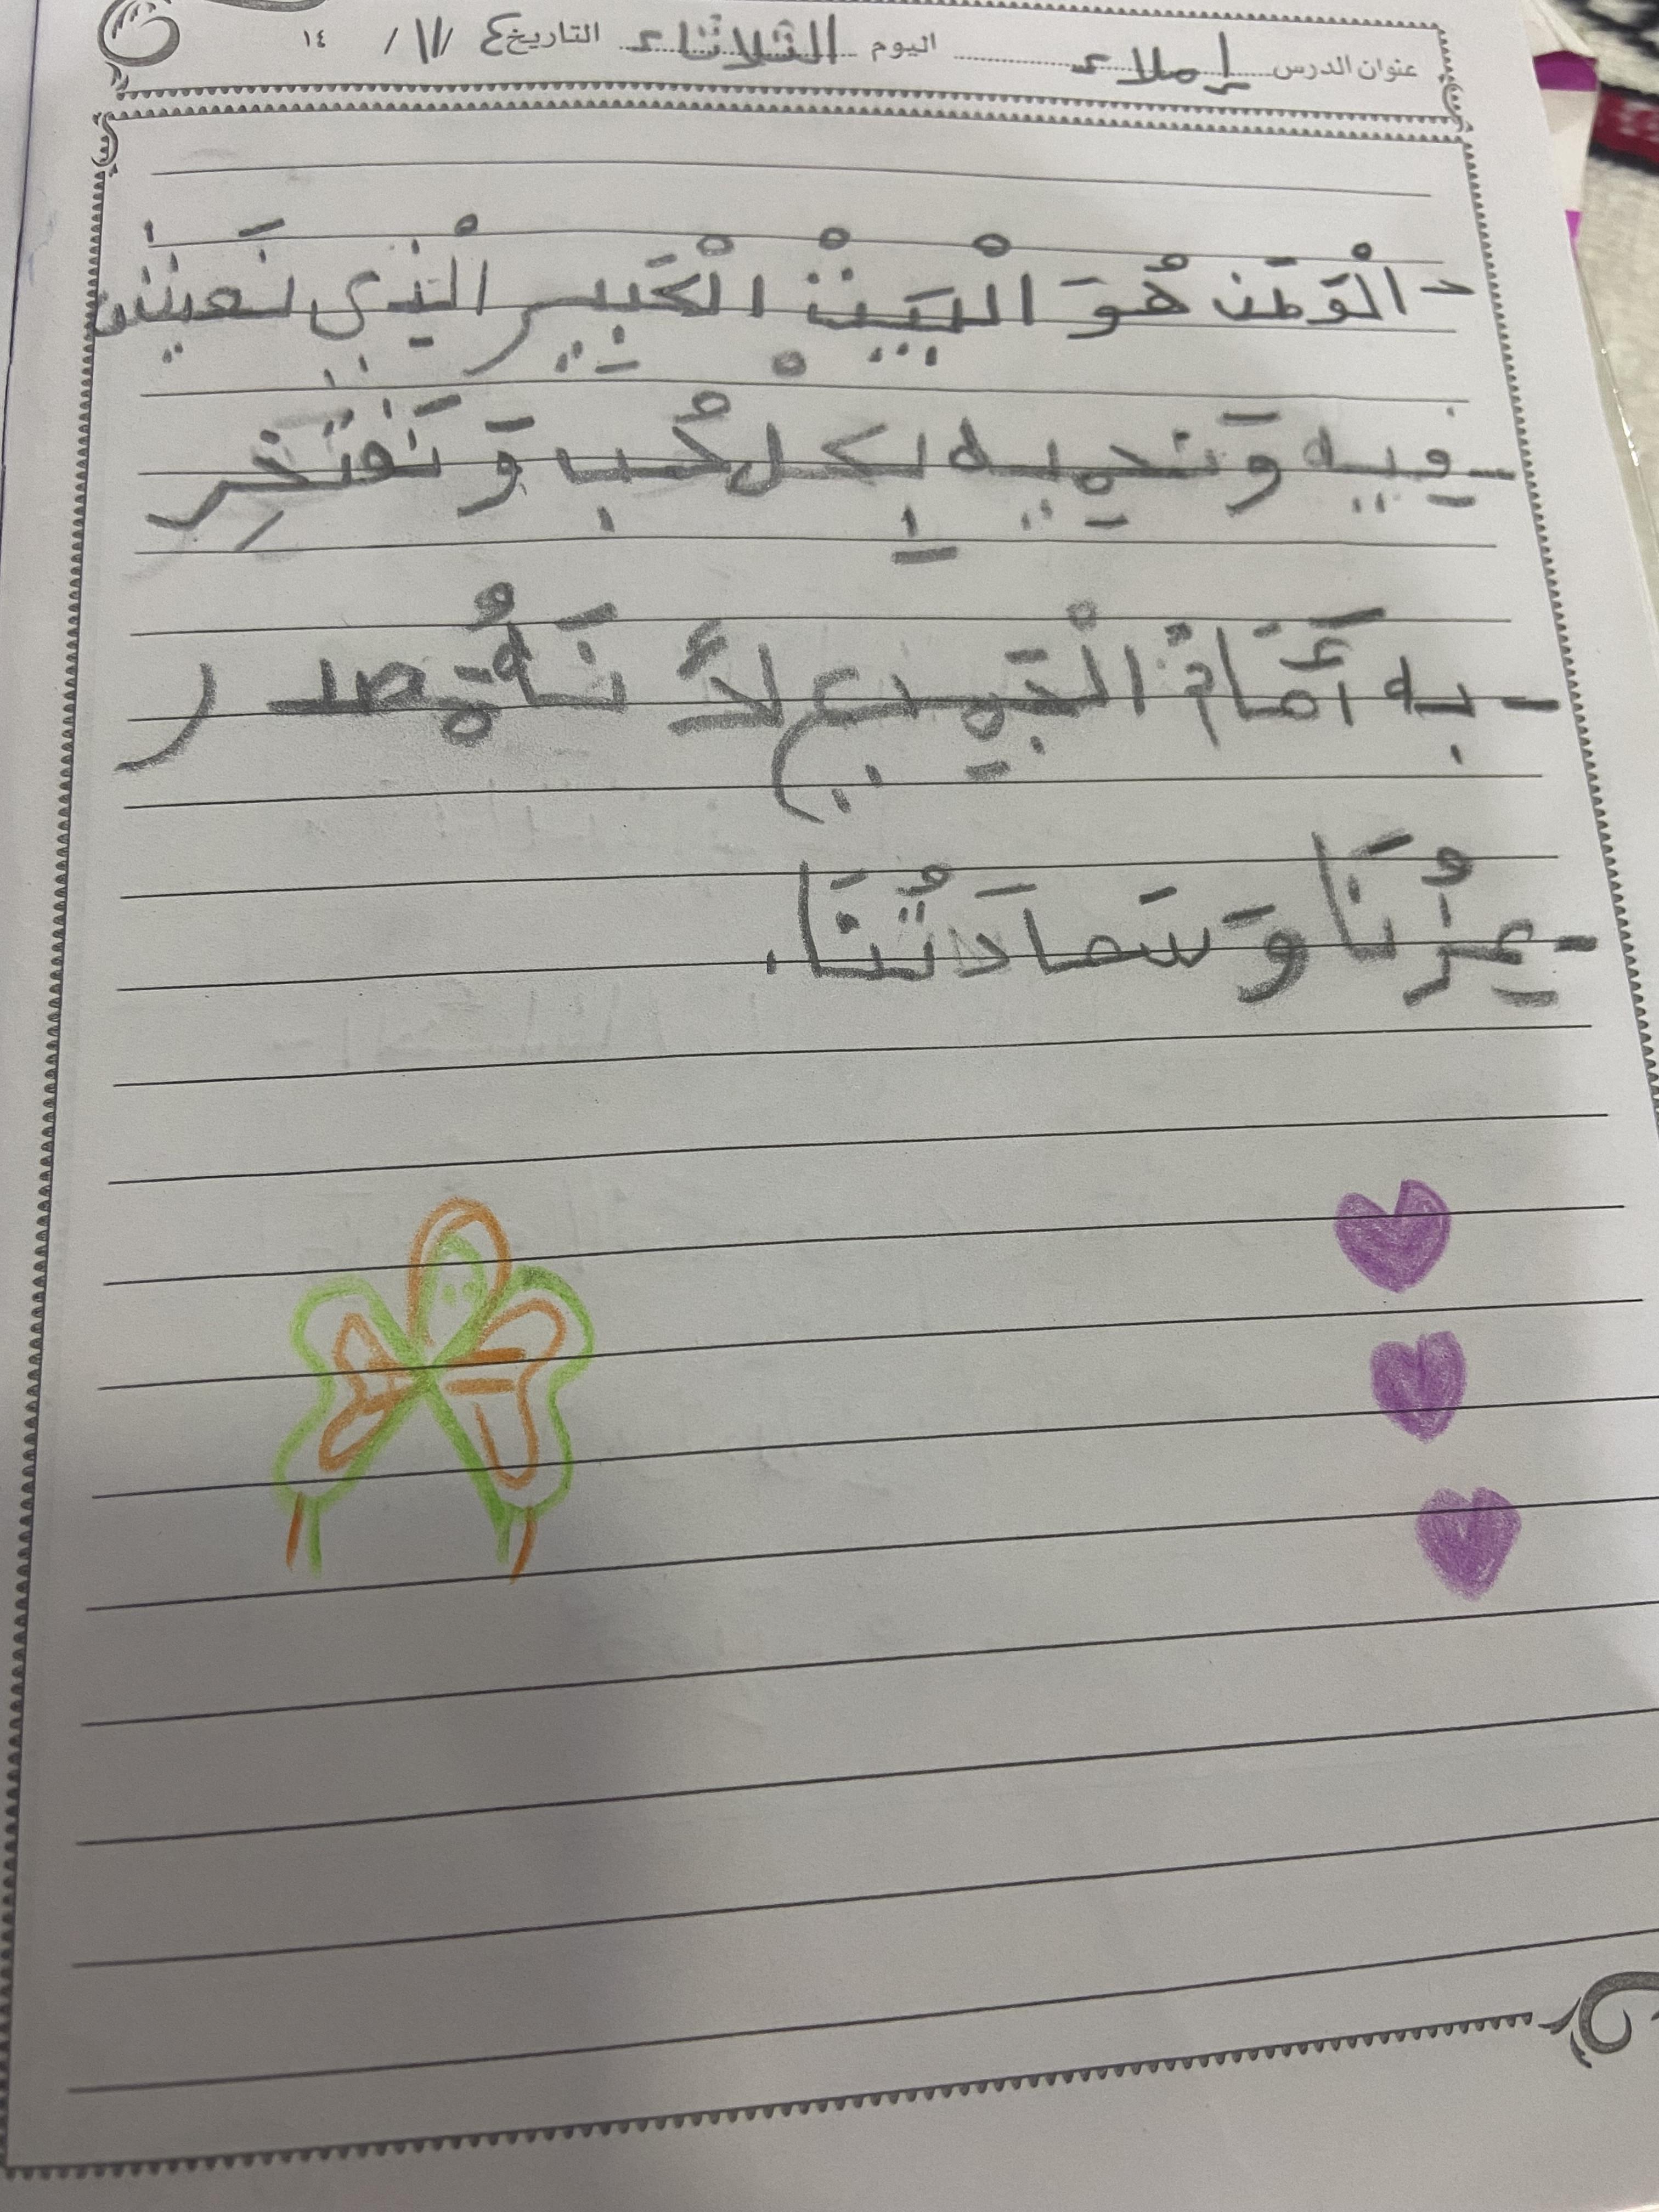 عنوان الدرس إملاء اليوم الثلاثاء التاريخ ٤ /١١/ ١٤
- الْوَطَن هُوَ الْبَيْتْ الْكَبِير الْذِي نَعيش
- فِيه وَنحمِيه بِكل حُب وَ نَفتَخِر
- به أَمَامَ الْجَمِيع لأَ نَهُ مَصد ر
- عِزُنَا وَ سَعادَتُنَا.